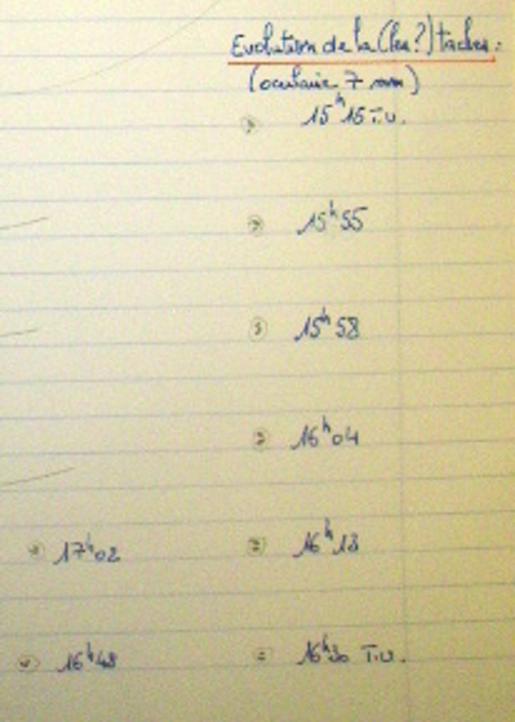 Evolution de la (les?) taches :
(oculaire 7 mm)
15h15 T.U.
15h55
15h58
16h04
17h02 16h18
16h48 16h30 T.U.